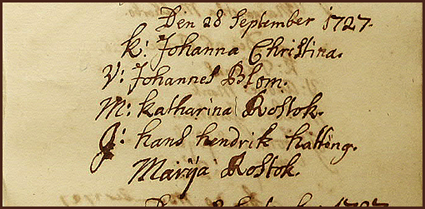 Den 28 September 1727.
K: Johanna Christina.
V: Johannes Blom.
M: Katharina Rostok.
G: hans hendrik hatting.
Marija Rostok.